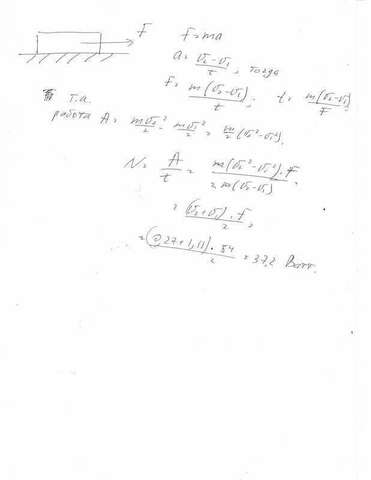 F
F = ma
a = (v₂ - v₁)/t, тогда
F = m(v₂ - v₁)/t; t = m(v₂ - v₁)/F
Т.а.
работа A = mv₂²/2 - mv₁²/2 = m/2 (v₂² - v₁²).
N = A/t = m(v₂² - v₁²)·F/2m(v₂ - v₁) =
= (v₂ + v₁)·F/2 =
= (0,27 + 1,11)·54/2 = 37,2 Ватт.